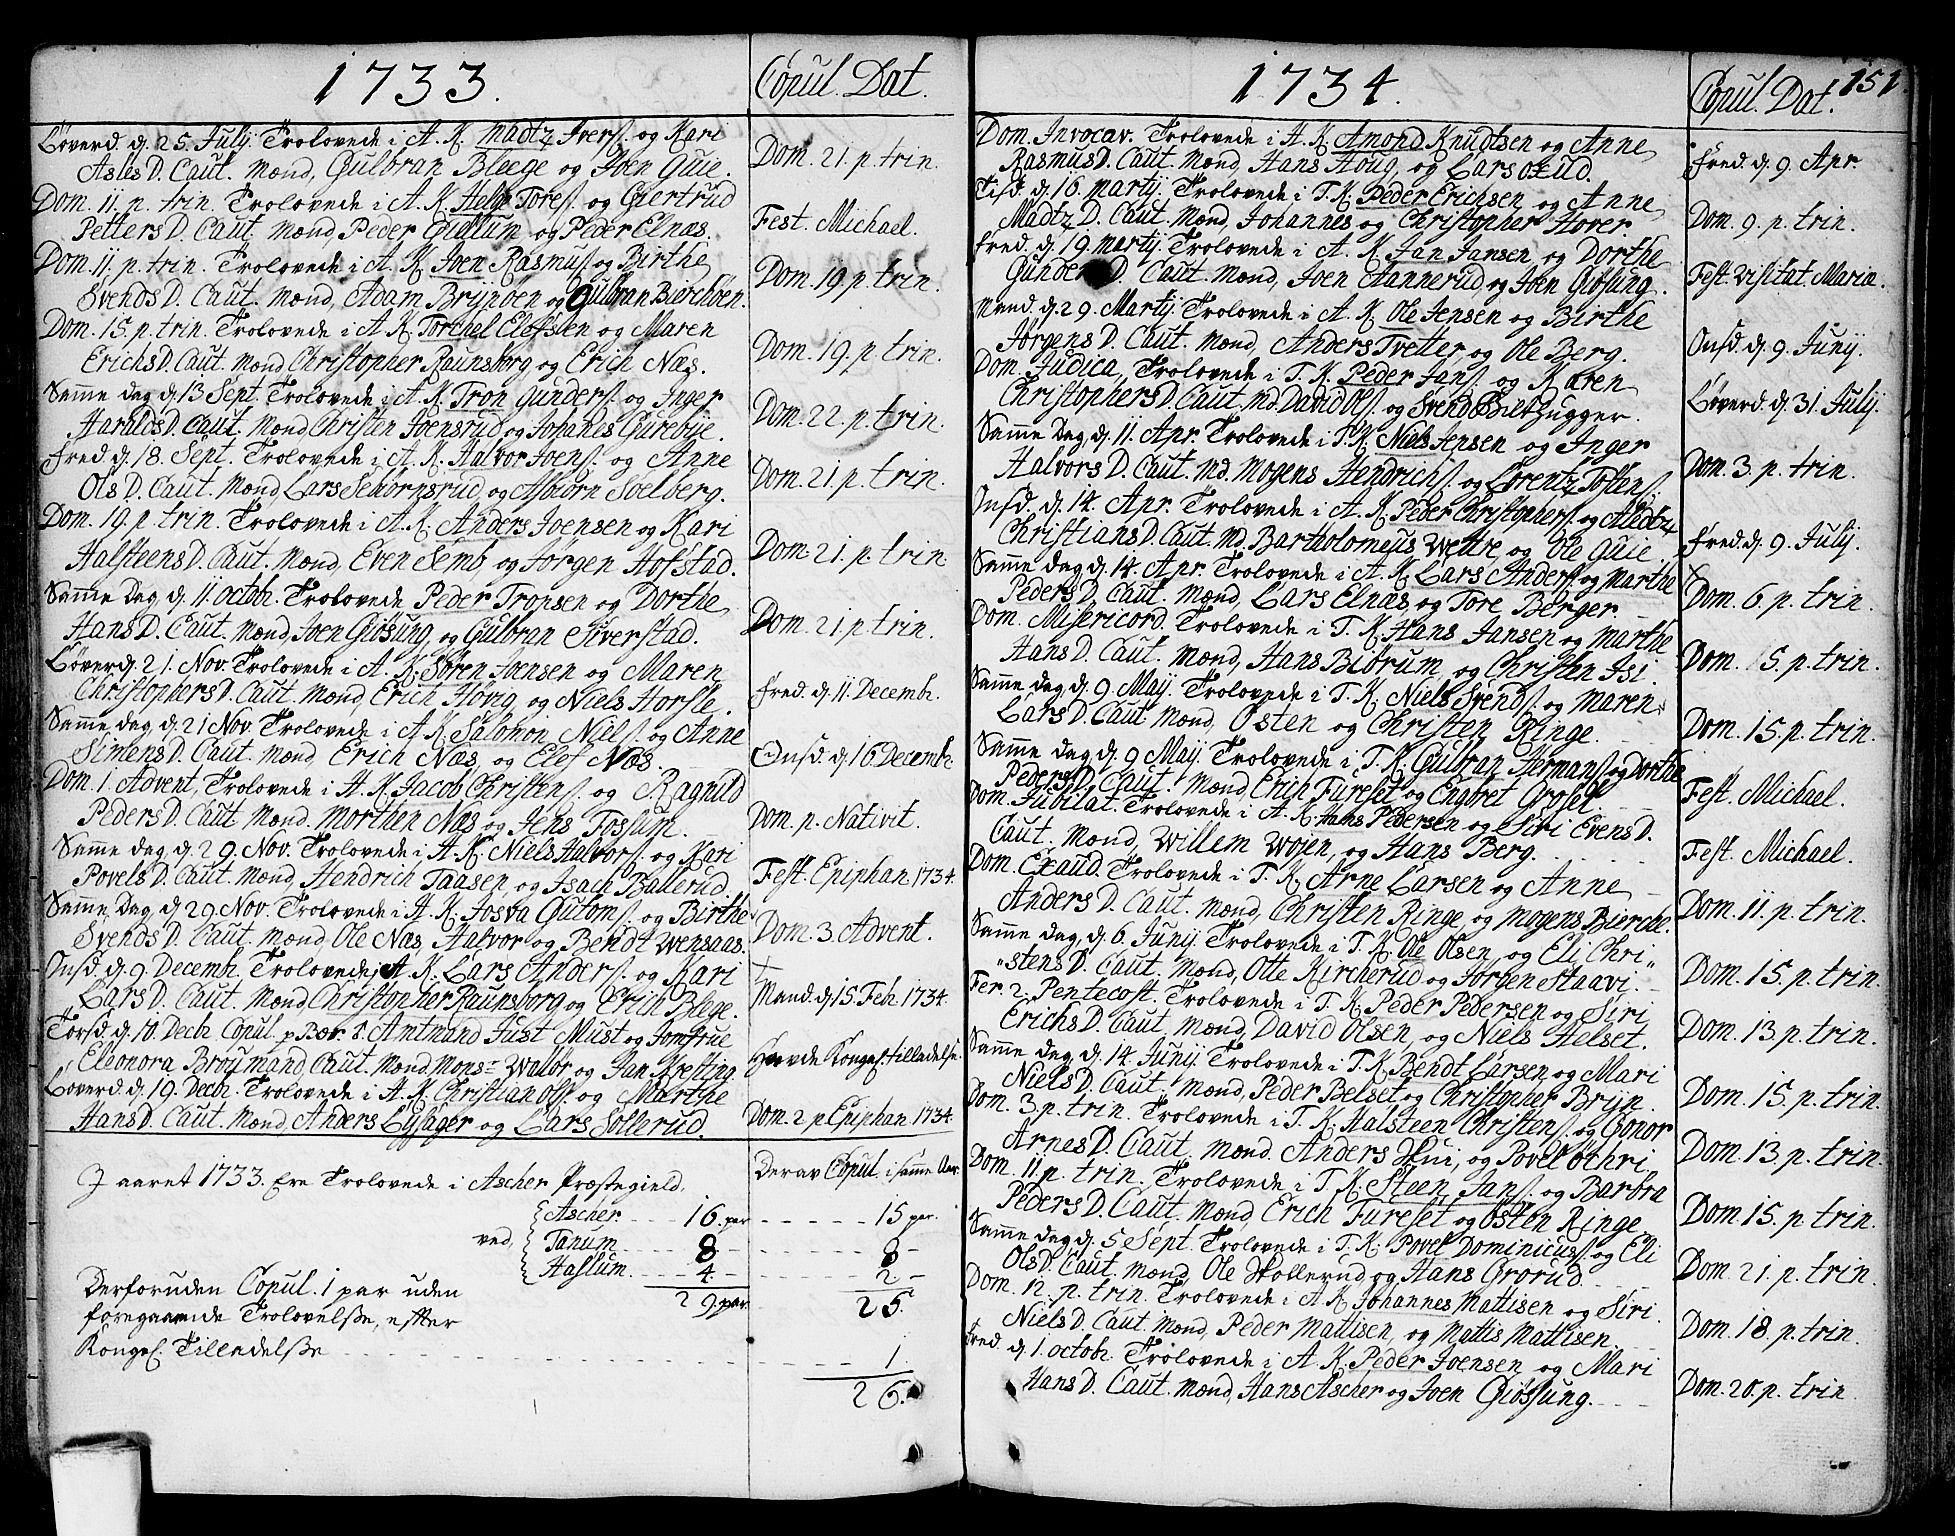 1733.
Copul. Dat.
Løverd. d. 25. Julij. Trolovede i A. K. Madtz Iversß. og Kari
Asles D. Caut. Mænd, Gulbran Bleege og Joen Guie.
Dom. 21. p. trin.
Dom. 11. p. trin. Trolovede i A. K. Helge Toresß. og Giertrud
Petters D. Caut. Mænd, Peder Gullum og Peder Elnæs.
Fest. Michael.
Dom. 11. p. trin. Trolovede i A. K. Joen Rasmusß. og Birthe
Svends D. Caut. Mænd, Adam Brijnöen og Gulbran Biercheen.
Dom. 19. p. trin.
Dom. 15. p. trin. Trolovede i A. K. Torchel Elofsßen og Maren
Erichs D. Caut. Mænd Christopher Raunsborg, og Erich Næs.
Dom. 19. p. trin.
Samme dag d. 13 Sept. Trolovede i A. K. Tron Gundersß. og Inger
Haralds D. Caut. Mænd Christen Joensrud og Johanes Gurebye.
Dom. 22. p. trin.
Fred. d. 18. Sept. Trolovede i A. K. Halvor Joensß. og Anne
Ols D. Caut. Mænd Lars Schornsrud, og Asbiörn Solberg.
Dom. 21. p. trin.
Dom. 19. p. trin. Trolovede i A. K. Anders Joensen og Kari
Halsteens D. Caut. Mænd, Even Semb, og Jörgen Hofstad.
Dom. 21. p. trin
Samme Dag, d. 11. octobr. Trolovede Peder Tronsen og Dorthe
Hans D. Caut. Mænd Joen Giösung, og Gulbran Siverstad.
Dom. 21. p. trin.
Løverd. 21. Nov. Trolovede i A. K. Sören Joensen og Maren
Christophers D. Caut. Mænd, Erich Hovig, og Niels Horsle.
Fred. d. 11. Decembr.
Samme dag, d. 21 Nov. Trolovede i A. K. Salomon Nielsß. og Anne
Simens D. Caut. Mænd, Erich Næs, og Elef Næs.
Onsd. d. 16 Decembr.
Dom. 1. Advent, Trolovede i A. K. Jacob Christensß. og Ragnild
Peders D. Caut Mænd. Morthen Næs og Jens Tossum.
Dom. p. Nativit.
Samme dag d. 29. Nov. Trolovede i A. K. Niels Halvorsß. og Kari
Povels D. Caut. Mænd, Hendrich Taasen, og Isach Ballerud.
Fest. Epiphan 1734.
Samme Dag, d. 29. Nov. Trolovede i A. K. Josva Gutomsß. og Birthe
Svends D. Caut. Mænd Ole Næs, Halvor og Bendt Wensaas.
Dom. 3. Advent.
Onsd. d. 9. Decembr. Trolovede i A. K. Lars Andersß. og Kari
Lars D. Caut. Mænd Christopher Raunsborg og Erich Blege.
Mand. d. 15. Feb. 1734.
Torsd. d. 10. Decbr. Copul. p Amtmand Just Must og Jomfrue
Eleonora Bröymand, Caut. Mænd, Monsr Walör og Jan Kretting.
Havde Kongel. tilladelse.
Løverd. d. 19. Decbr. Trolovede i A. K. Christian Olsß. og Marthe
Hans D. Caut. Mænd, Anders Lysager og Lars Sollerud.
Dom. 2 p Epiphan 1734.
I aaret 1733. Ere Trolovede i Ascher Præstegield,
Derav Copul. i samme Aar.
ved,
Ascher. 16. par 15 par.
Tanum 8 8
Haslum. 4 2
29. par 25.
Derforuden Copul. 1 par uden
foregaaende Trolovelsße, efter
Kongel. Tilladelsße 1
26.
1734.
Copul. Dat.
151.
Dom. Invocav. Trolovede i A. K. Amond Knudtsen og Anne
Rasmus D. Caut. Mænd, Hans Houg, og Lars oxud.
Fred. d. 9 Apr.
Tisd. d. 16. Martij. Trolovede i T. K. Peder Erichsen og Anne
Madtz D. Caut. Mænd, Johannes og Christopher Hover
Dom. 9. p. trin.
Fred. d. 19. Martij. Trolovede i A. K. Jan Jansen, og Dorthe
Gunder D. Caut. Mænd, Joen Aannerud, og Joen Giösung.
Fest. Visitat. Mariæ.
Mand. d. 29. Martij. Trolovede i A. K. Ole Jensen og Birthe
Jörgens D. Caut. Mænd, Anders Tvetter og Ole Berg.
Onsd. d. 9. Junij.
Dom. Judica, Trolovede i T. K. Peder Jansß. og Karen
Christophers D. Caut. Md. David Olsß. og Svend Biltzugger
Løverd. d. 31. Julij.
Samme Dag, d. 11. Apr. Trolovede i T. K. Niels Jensen og Inger
Halvors D. Caut. Md. Mogens Hendrichsß. og Lorentz Tostensß.
Dom. 3. p. trin.
Onsd. d. 14. Apr. Trolovede i A. K. Peder Christophersß. og Aledtz
Christians D. Caut. Md. Bartholomeus Wettre og Ole Guie.
Fred. d. 9. Julij.
Samme dag d. 14. Apr. Trolovede i A. K. Lars Andersß. og Marthe
Peders D. Caut. Mænd, Lars Elnæs, og Tore Berger.
Dom. 6. p. trin.
Dom. Misericord. Trolovede i T. K. Hans Jansen og Marthe
Hans D. Caut. Mænd, Hans Biörum, og Christen Isi.
Dom. 15. p. trin.
Samme dag, d. 9. Maij. Trolovede i T. K. Niels Svendsß. og Maren
Lars D. Caut. Mænd, Östen og Christen Ringe.
Dom. 15. p. trin.
Samme dag d. 9 Maij Trolovede i T. K. Gulbran Hermansß. og Dorthe
Peders D. Caut. Mænd, Erich Fureset og Engbret Groset.
Fest. Michael.
Dom. Jubilat. Trolovede i A. K. Hans Pedersen og Siri Evens D.
Caut. Mænd, Willem Wojen, og Hans Berg.
Fest. Michael.
Dom. Exaud. Trolovede i T. K. Arne Larsen og Anne
Anders D. Caut. Mænd, Christen Ringe og Mogens Bierche.
Dom. 11. p. trin.
Samme dag, d. 6. Junij. Trolovede i T. K. Ole Olsen, og Eli Chri-
stens D. Caut. Mænd, Otte Kircherud og Jörgen Staavi.
Dom. 15. p. trin.
Fer. 2. Pentecost. Trolovede i T. K. Peder Pedersen og Siri
Erichs D. Caut. Mænd, David Olsen, og Niels Helset.
Dom. 13. p. trin.
Samme dag d. 14. Junij. Trolovede i T. K. Bendt Larsen og Mari
Niels D. Caut. Mænd, Peder Belset og Christopher Brijn.
Dom. 15. p. trin.
Dom. 3. p. trin. Trolovede i T. K. Halsteen Christensß. og Gonor
Arnes D. Caut. Mænd. Anders Hui, og Povel Öthri.
Dom. 13. p. trin.
Dom. 11. p. trin. Trolovede i T. K. Steen Jansß. og Barbra
Peders D. Caut. Mænd, Erich Fureset og Östen Ringe.
Dom. 15. p. trin.
Samme dag d. 5 Sept. Trolovede i T. K. Povel Dominicusß. og Eli
Ols D. Caut. Mænd, Ole Skollerud og Hans Grorud
Dom. 21. p. trin.
Dom. 12. p. trin. Trolovede i A. K. Johannes Mattisen og Siri
Niels D. Caut. Mænd, Peder Mattisen, og Mattis Mattisen.
Dom. 18. p. trin.
Fred. d. 1. octobr. Trolovede i A. K. Peder Joensen, og Mari
Hans D. Caut. Mænd, Hans Ascher og Joen Giösung.
Dom. 20. p. trin.